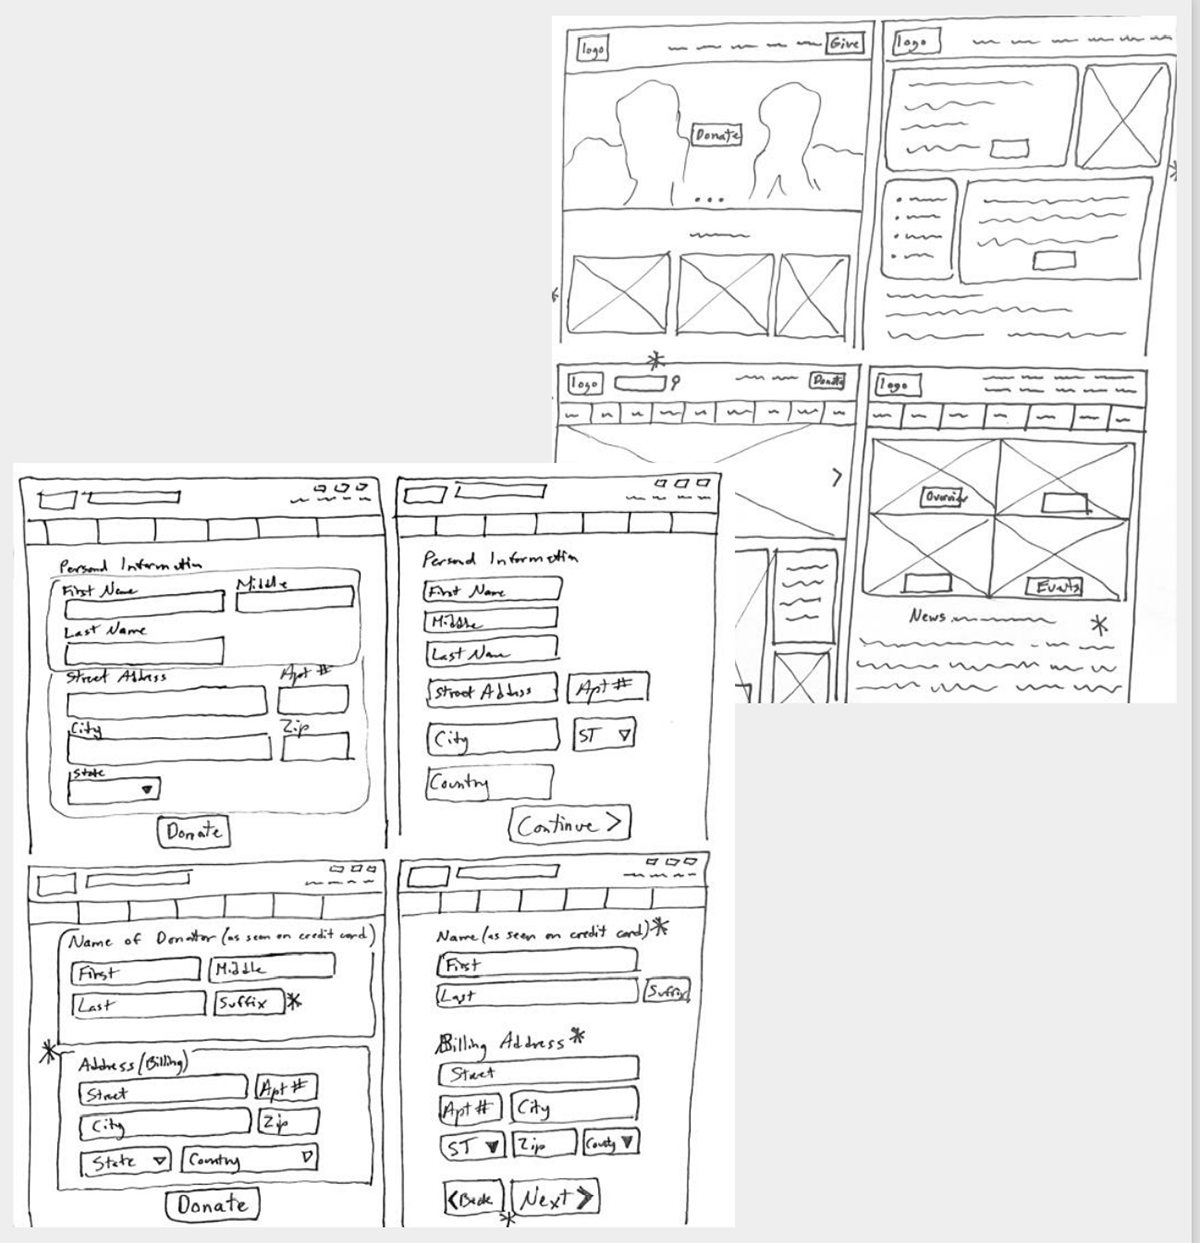 logo
Give
Donate
logo
logo
Donate
logo
Overview
Events
News
Personal Information
First Name
Middle
Last Name
Street Address
Apt #
City
Zip
State
Donate
Personal Information
First Name
Middle
Last Name
Street Address
Apt #
City
ST
Country
Continue >
Name of Donator (as seen on credit card)
First
Middle
Last
Suffix *
* Address (Billing)
Street
Apt #
City
Zip
State
Country
Donate
Name (as seen on credit card) *
First
Last
Suffix
Billing Address *
Street
Apt #
City
ST
Zip
< Back
Next >
*